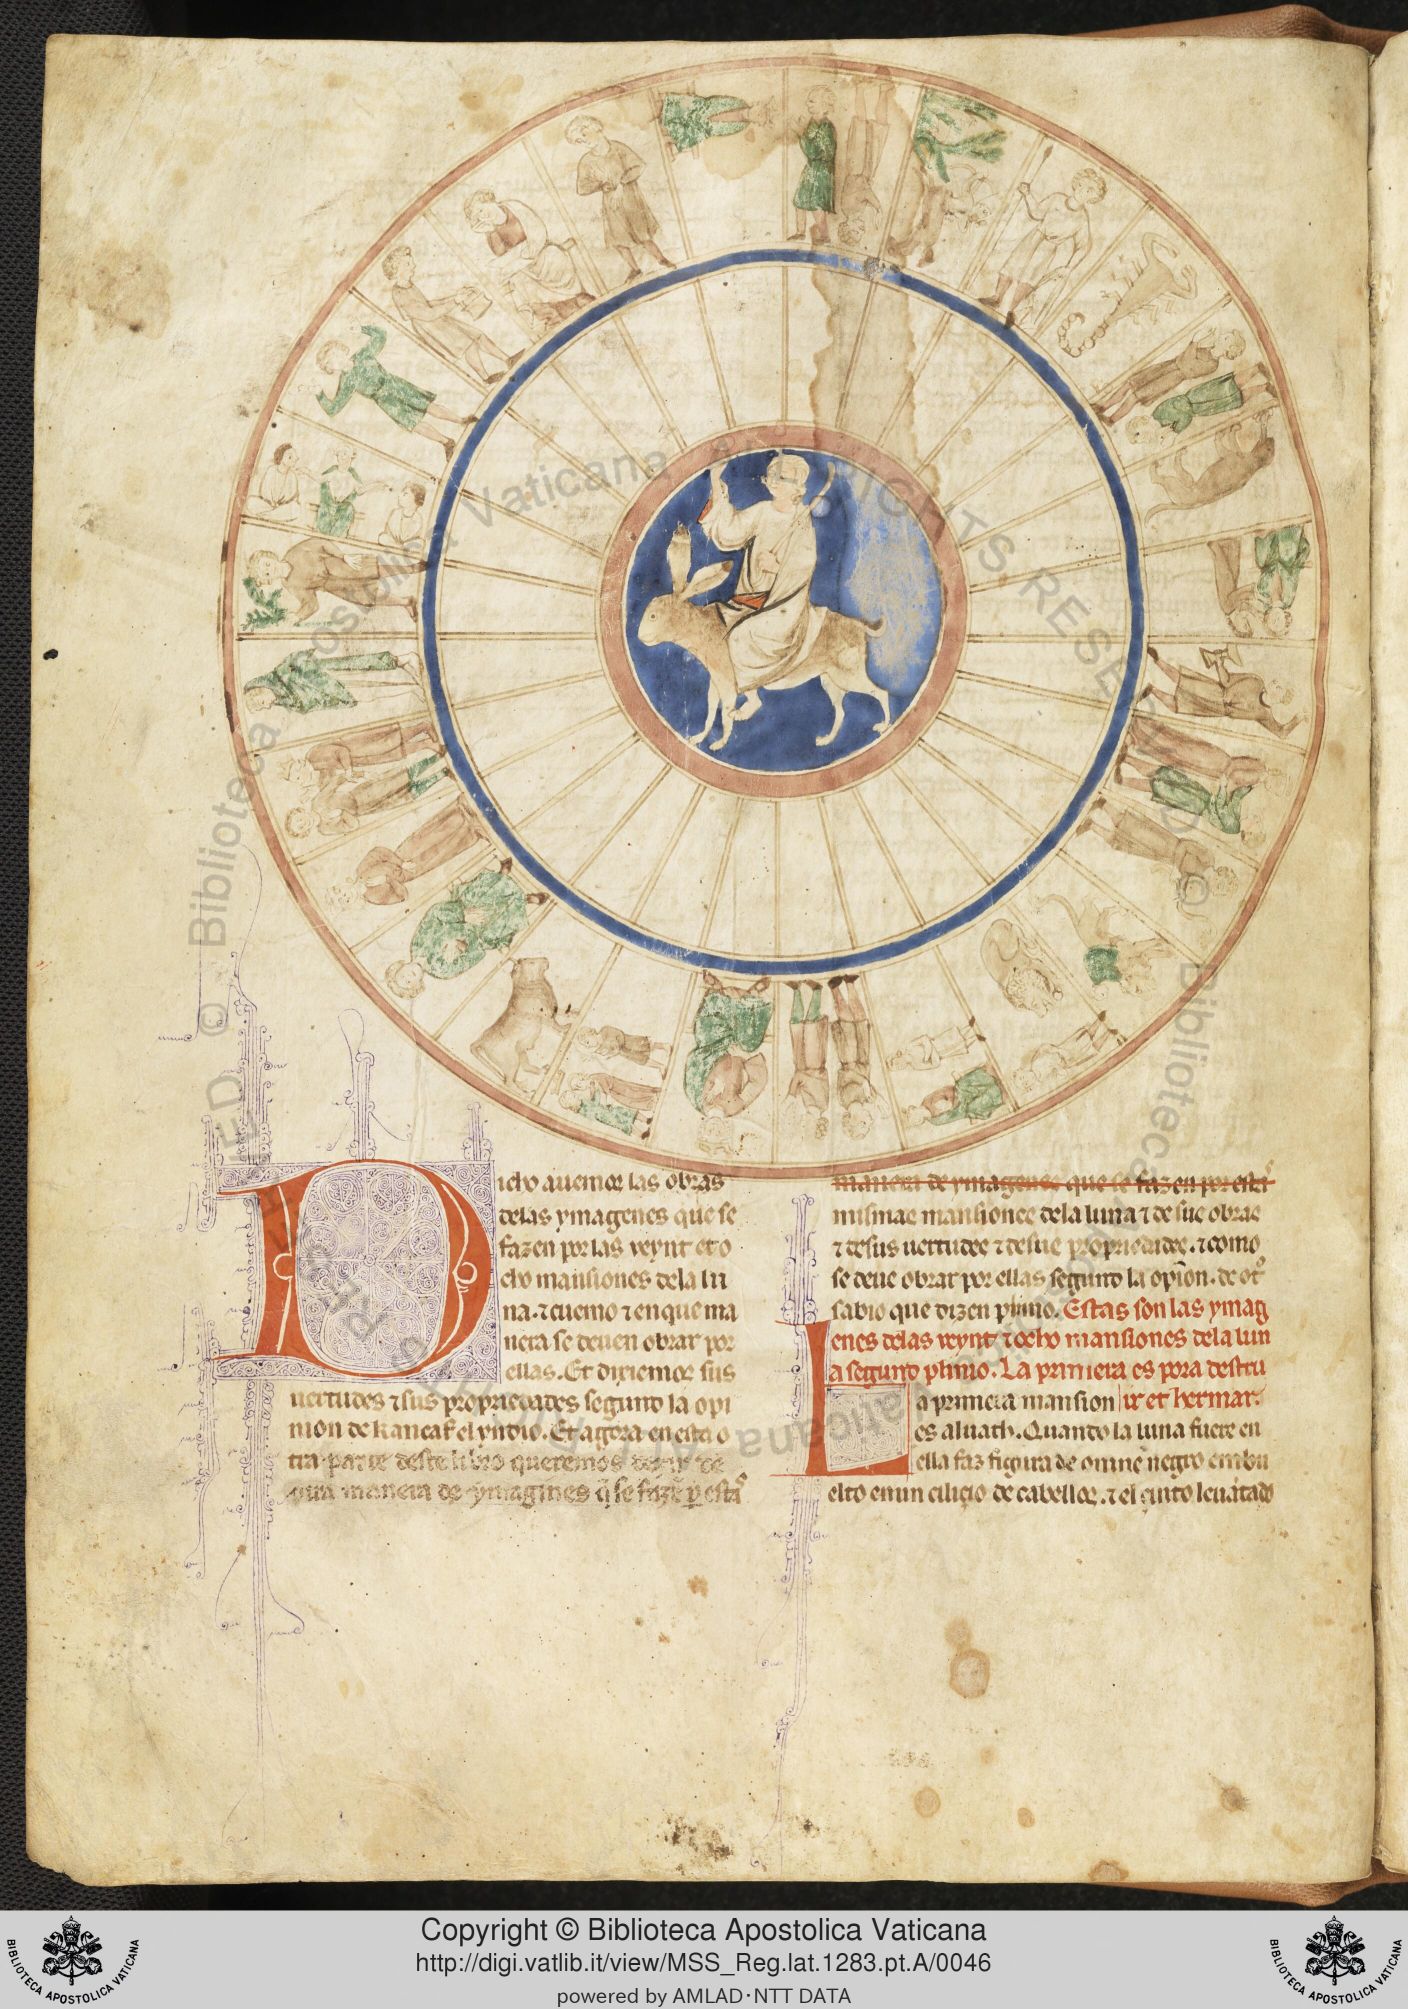 Dicho auemos las obras
delas ymagenes que se
fazen por las veynt et o
cho mansiones dela lu
na. ⁊ cuemo ⁊ en que ma
nera se deuen obrar por
ellas. Et dixiemos sus
uertudes ⁊ sus propriedades segund la opi
nion de Kancaf el yndio. Et agora en esta o
tra parte deste libro queremos dezir de
otra manera de ymagines q̄ se fazẽ ꝑ esta
manera de ymagenes que se fazen por estas
mismas mansiones dela luna ⁊ de sus obras
⁊ desus uertudes ⁊ desus propriedades. ⁊ como
se deue obrar por ellas segund la opiõn. de otº
sabio que dizen plinio. Estas son las ymag
enes delas veynt ⁊ ocho mansiones dela lun
a segund plinio. La primera es pora destru
La primera mansion ir et hermar.
es aluath. Quando la luna fuere en
ella faz figura de omne negro embu
elto en un cilicio de cabellos. ⁊ el cinto leuãtado
© Biblioteca Apostolica Vaticana ALL RIGHTS RESERVED © Biblioteca Apostolica Vaticana ALL RIGHTS RESERVED
Copyright © Biblioteca Apostolica Vaticana
http://digi.vatlib.it/view/MSS_Reg.lat.1283.pt.A/0046
powered by AMLAD·NTT DATA
BIBLIOTECA APOSTOLICA VATICANA
BIBLIOTECA APOSTOLICA VATICANA